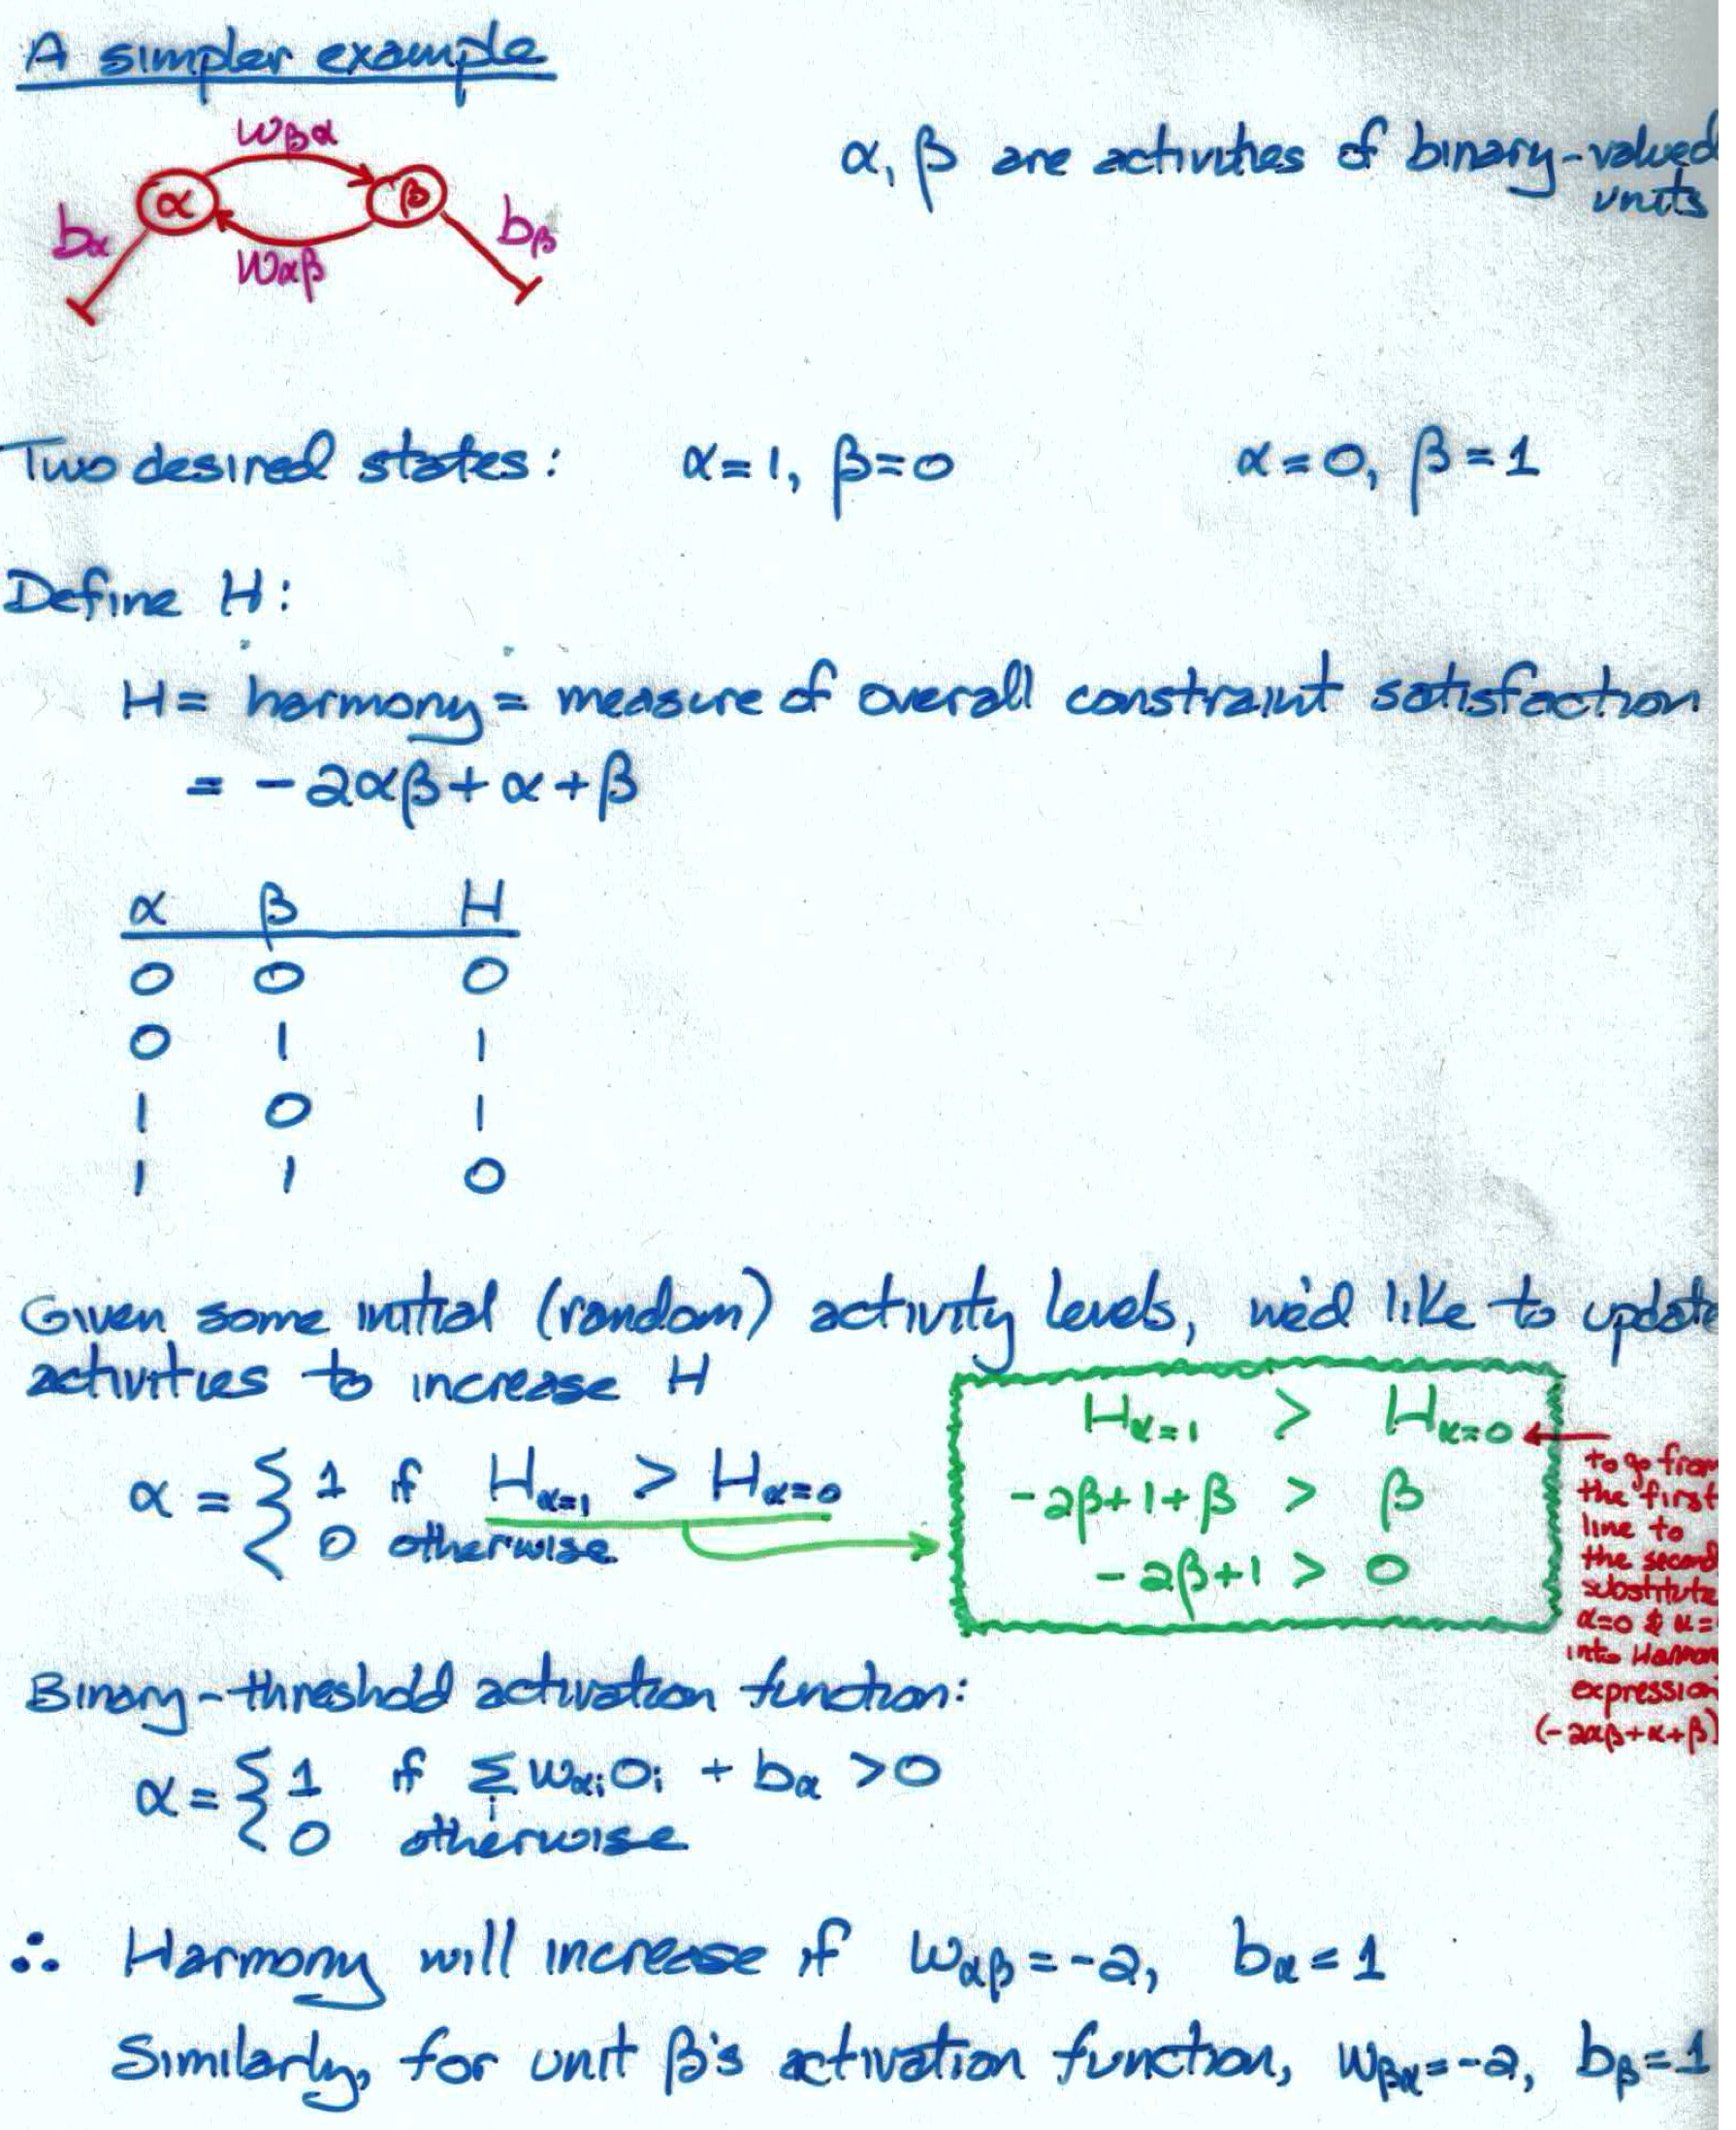 A simpler example
wβα
α β
bα bβ
wαβ
α, β are activities of binary-valued
units
Two desired states: α=1, β=0 α=0, β=1
Define H:
H = harmony = measure of overall constraint satisfaction
= -2αβ + α + β
α β H
0 0 0
0 1 1
1 0 1
1 1 0
Given some initial (random) activity levels, we'd like to update
activities to increase H
α = { 1 if Hα=1 > Hα=0
0 otherwise
Hα=1 > Hα=0
-2β+1+β > β
-2β+1 > 0
to go from
the first
line to
the second
substitute
α=0 & α=
into Harmon
expression
(-2αβ+α+β)
Binary-threshold activation function:
α = { 1 if Σi wαi oi + bα > 0
0 otherwise
∴ Harmony will increase if wαβ = -2, bα = 1
Similarly, for unit β's activation function, wβα = -2, bβ = 1